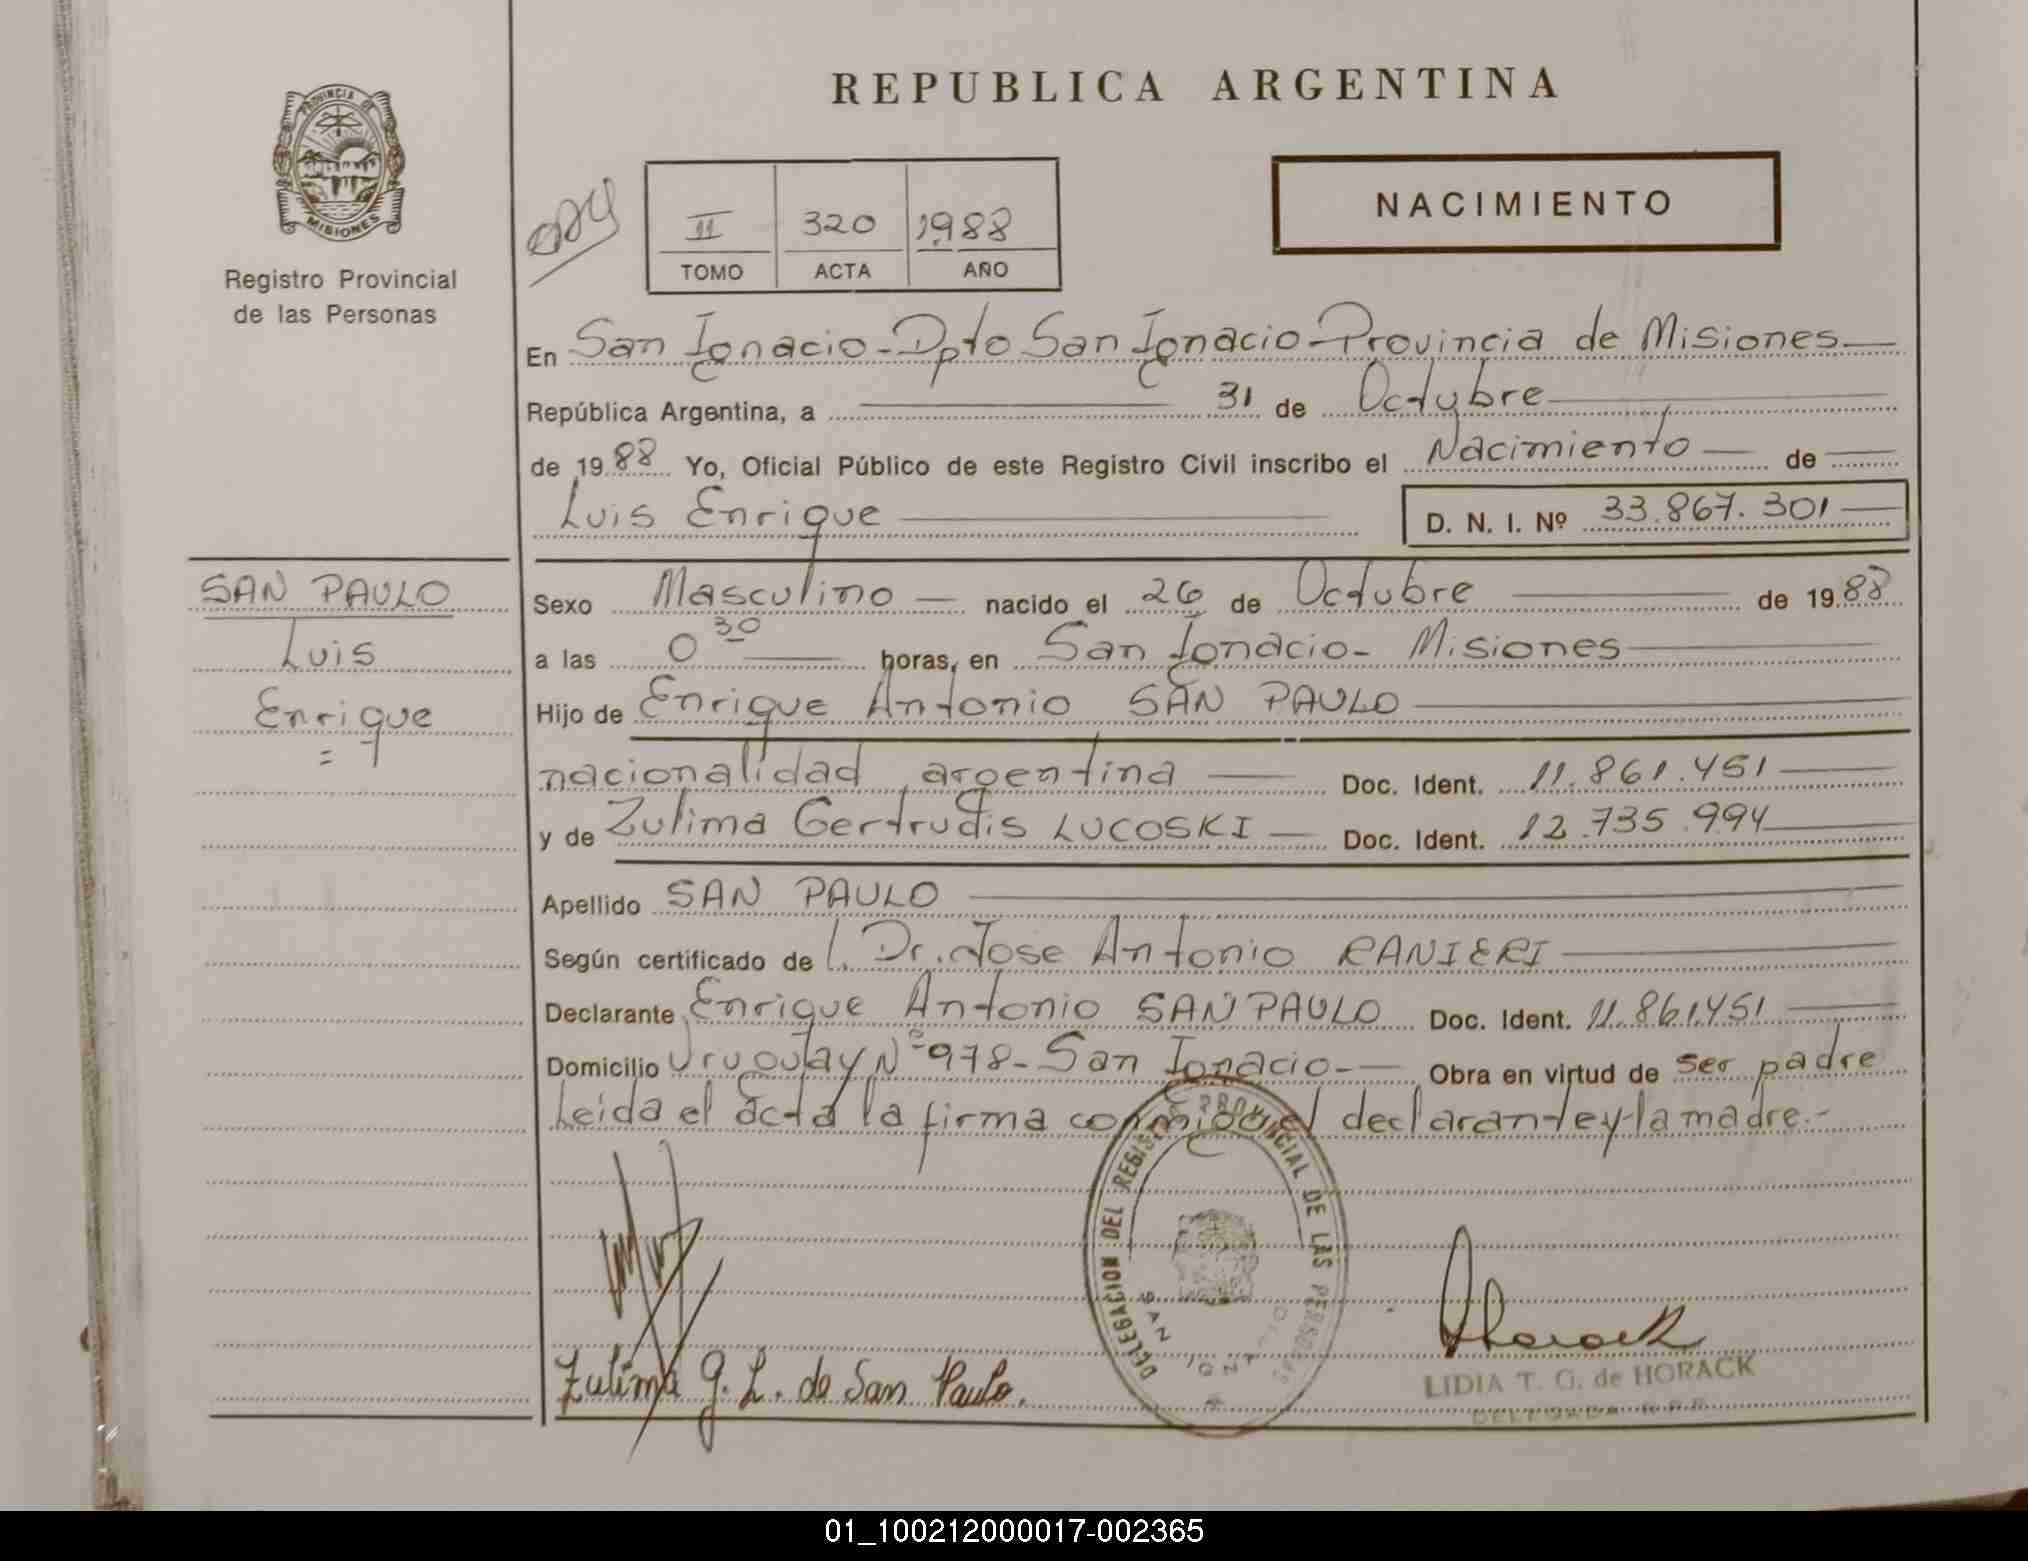 REPUBLICA ARGENTINA
PROVINCIA DE
MISIONES
Registro Provincial
de las Personas
II 320 1988
TOMO ACTA AÑO
NACIMIENTO
En San Ignacio - Dpto San Ignacio - Provincia de Misiones
República Argentina, a 31 de Octubre
de 1988 Yo, Oficial Público de este Registro Civil inscribo el Nacimiento de
Luis Enrique D. N. I. Nº 33.867.301
SAN PAULO
Luis
Enrique
Sexo Masculino nacido el 26 de Octubre de 1988
a las 0 30 horas, en San Ignacio - Misiones
Hijo de Enrique Antonio SAN PAULO
nacionalidad argentina Doc. Ident. 11.861.451
y de Zulima Gertrudis LUCOSKI Doc. Ident. 12.735.994
Apellido SAN PAULO
Según certificado de l. Dr. Jose Antonio RANIERI
Declarante Enrique Antonio SAN PAULO Doc. Ident. 11.861.451
Domicilio Uruguay Nº 978 - San Ignacio - Obra en virtud de ser padre
Leida el acta la firma conmigo el declarante y la madre.-
DELEGACION DEL REGISTRO PROVINCIAL DE LAS PERSONAS
SAN IGNACIO
Zulima G. L. de San Paulo.
Horack
LIDIA T. G. de HORACK
DELEGADA R.P.P.
01_100212000017-002365